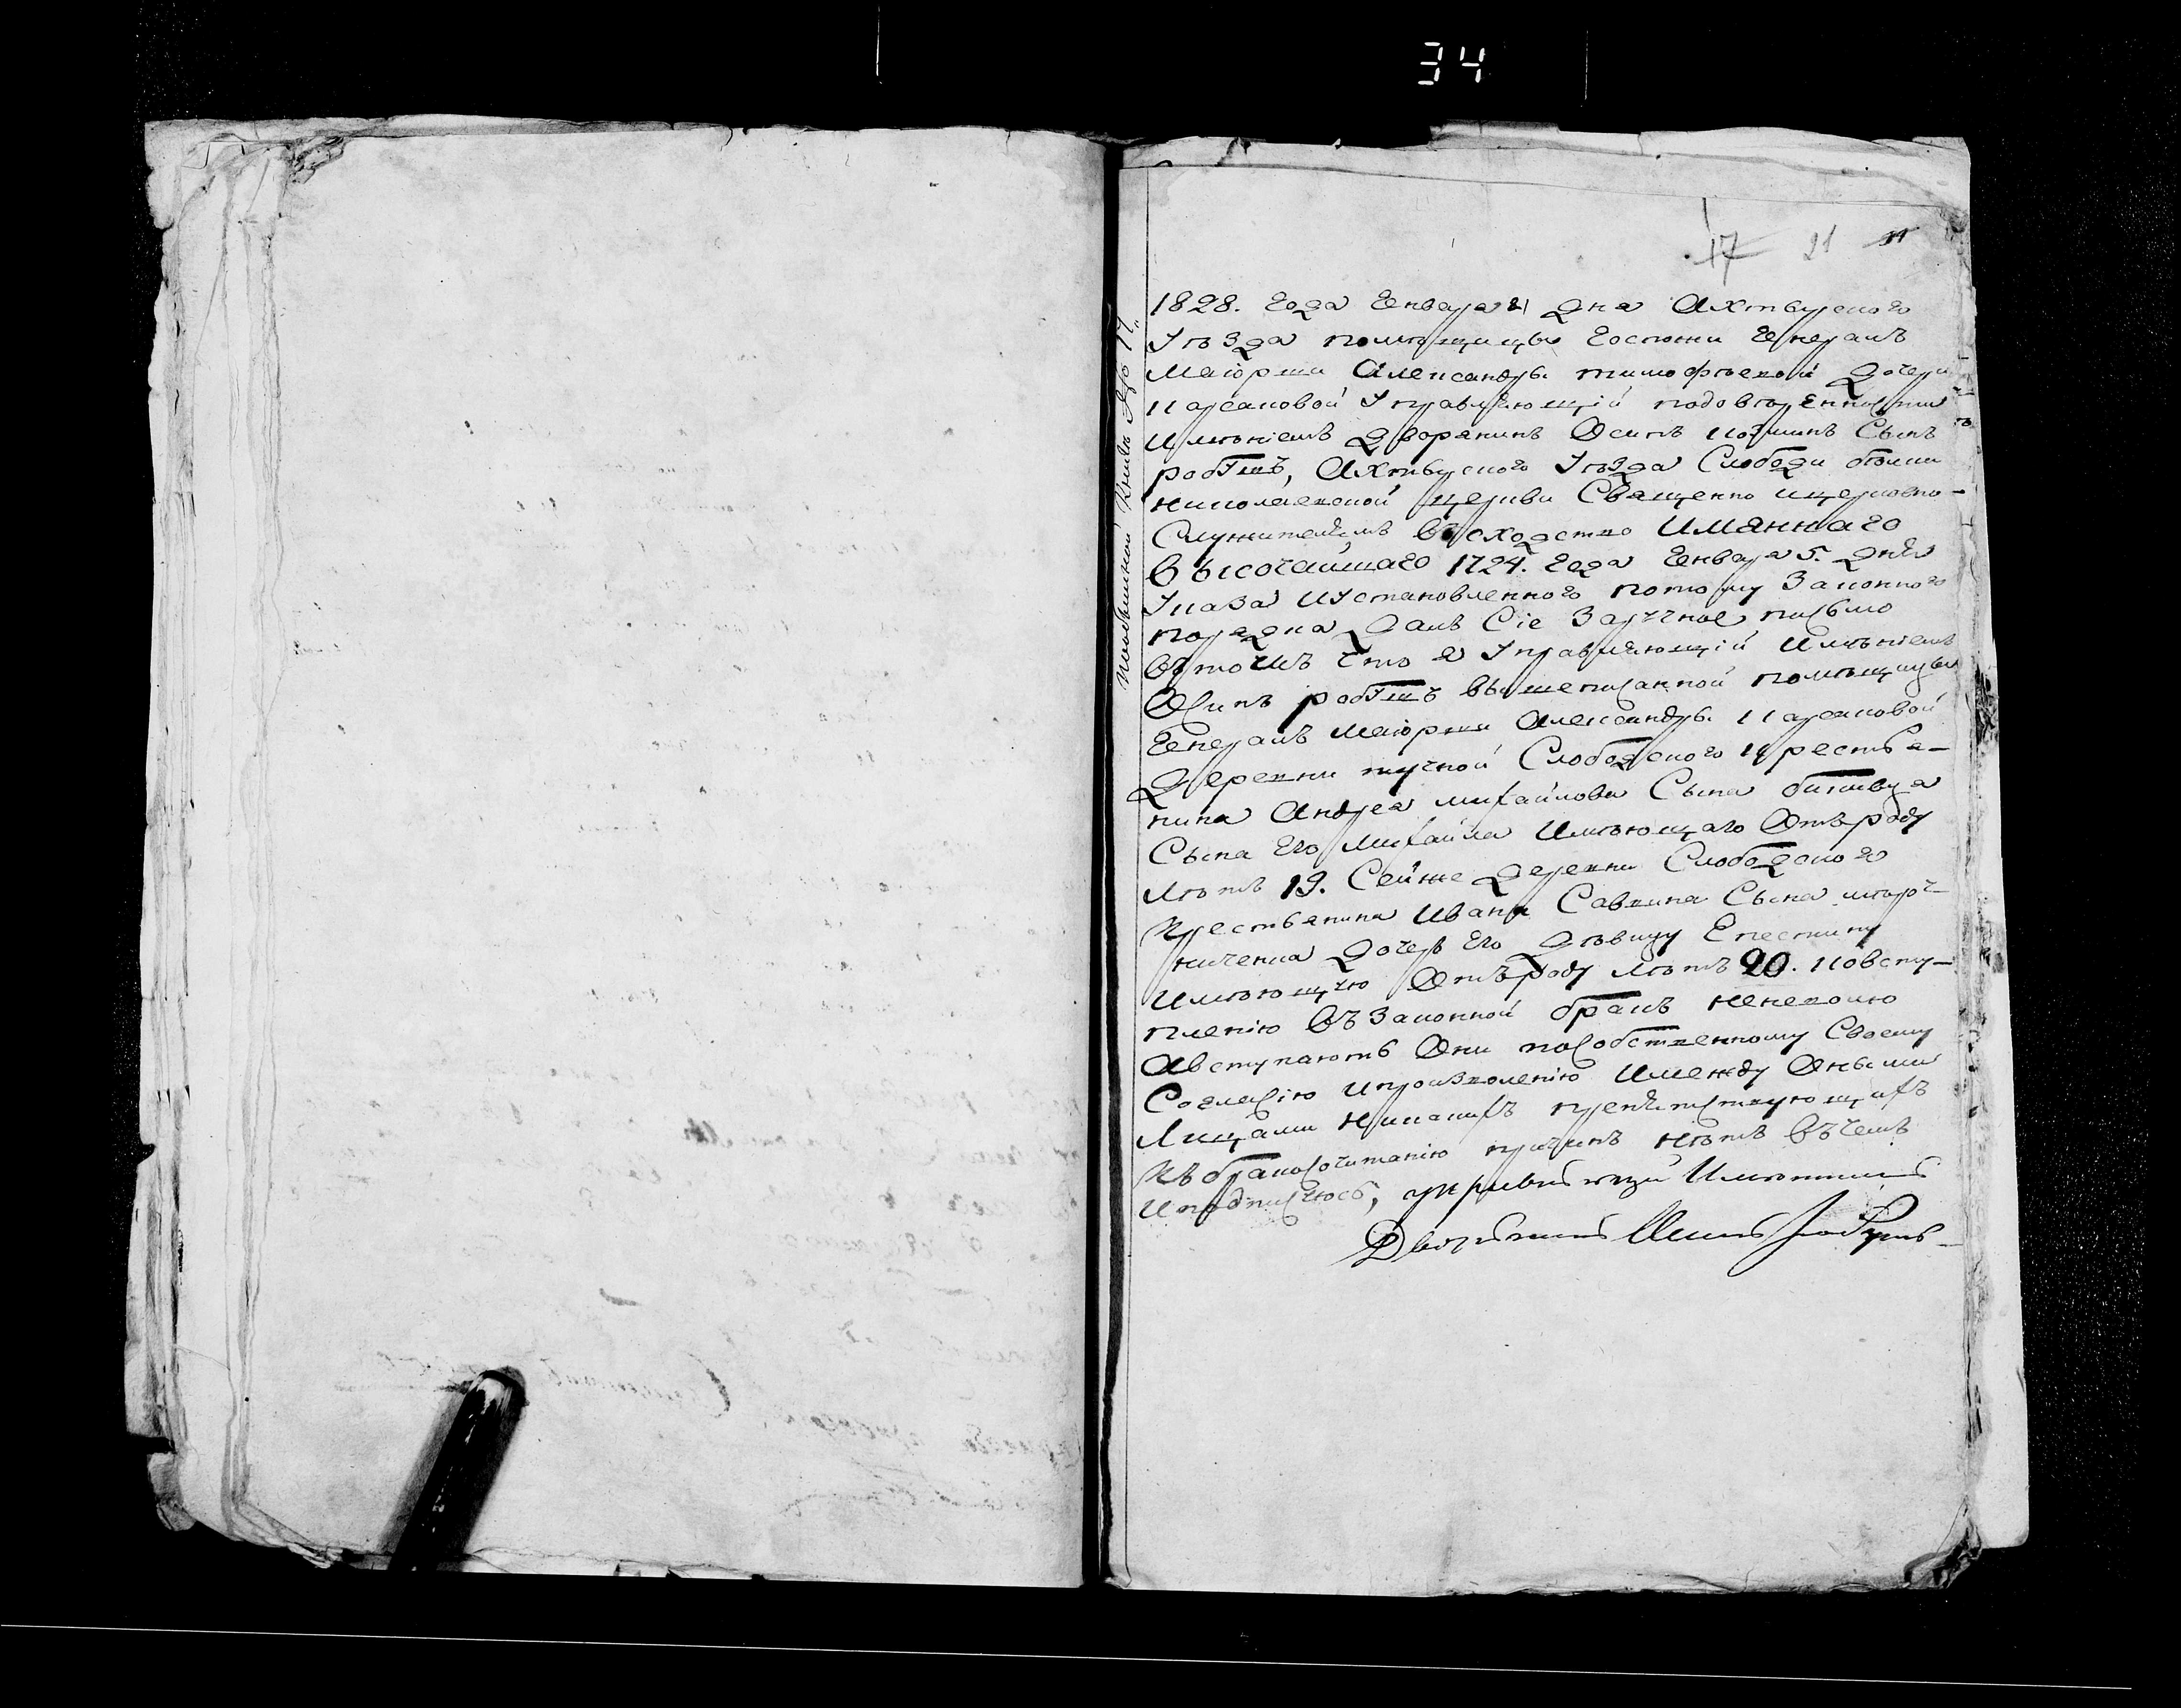 34
17 21 11
пообыскной книгѣ № 17
1828. года Генваря 21 дня Ахтырского
Уѣзда помѣщицы Госпожи Генералъ
Маіорши Александры тимофѣевой дочери
Карсаковой Управляющій подоверенности
Имѣніемъ дворянинъ Осипъ козминъ Сынъ
робушъ, Ахтырского Уѣзда Слободи
николаевской церкви Священно ицерковно-
Служителямъ Всходство Имяннаго
Высочайшаго 1724. Года Генваря 5. дня
Указа иустановленного потому Законного
порядка далъ Сіе Заручное писмо
Втомъ что я Управляющій Имѣніемъ
Осипъ робушъ вышеписанной помѣщицы
Генералъ Маіорши Александры Карсаковой
деревни тучной Слободского крестья-
нина Андрея михайлова Сына битивца
Сына Его Михайла Имѣющаго Отъроду
лѣтъ 19. Сейже деревни Слободского
крестьянина Ивана Саввина Сына
ниченка дочерь Его дѣвицу Епестину
Имѣющую Отъроду лѣтъ 20. ковсту-
пленію Въ Законной бракъ неневолю
Авступаютъ Они пособственному Своему
Согласію ипроизволенію Имежду Оными
Лицами никакихъ препятствующихъ
Къ бракосочитанію причинъ нѣтъ Въчемъ
Иподписуюсь, управляющи Имениемъ
Дворянинъ Осипъ Робушъ